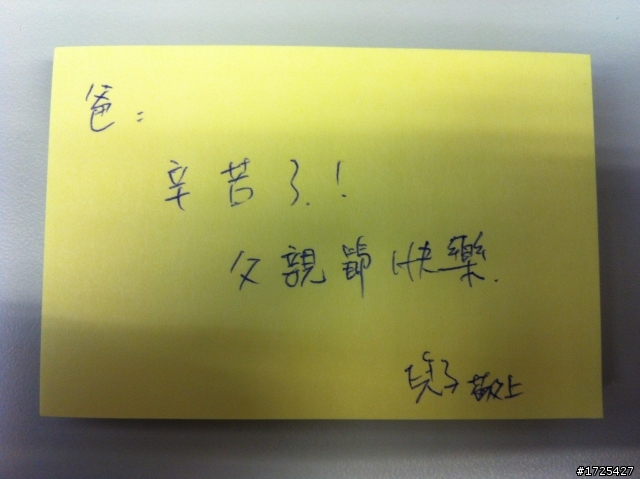 爸：
辛苦了！
父親節快樂.
兒子 敬上
#1725427